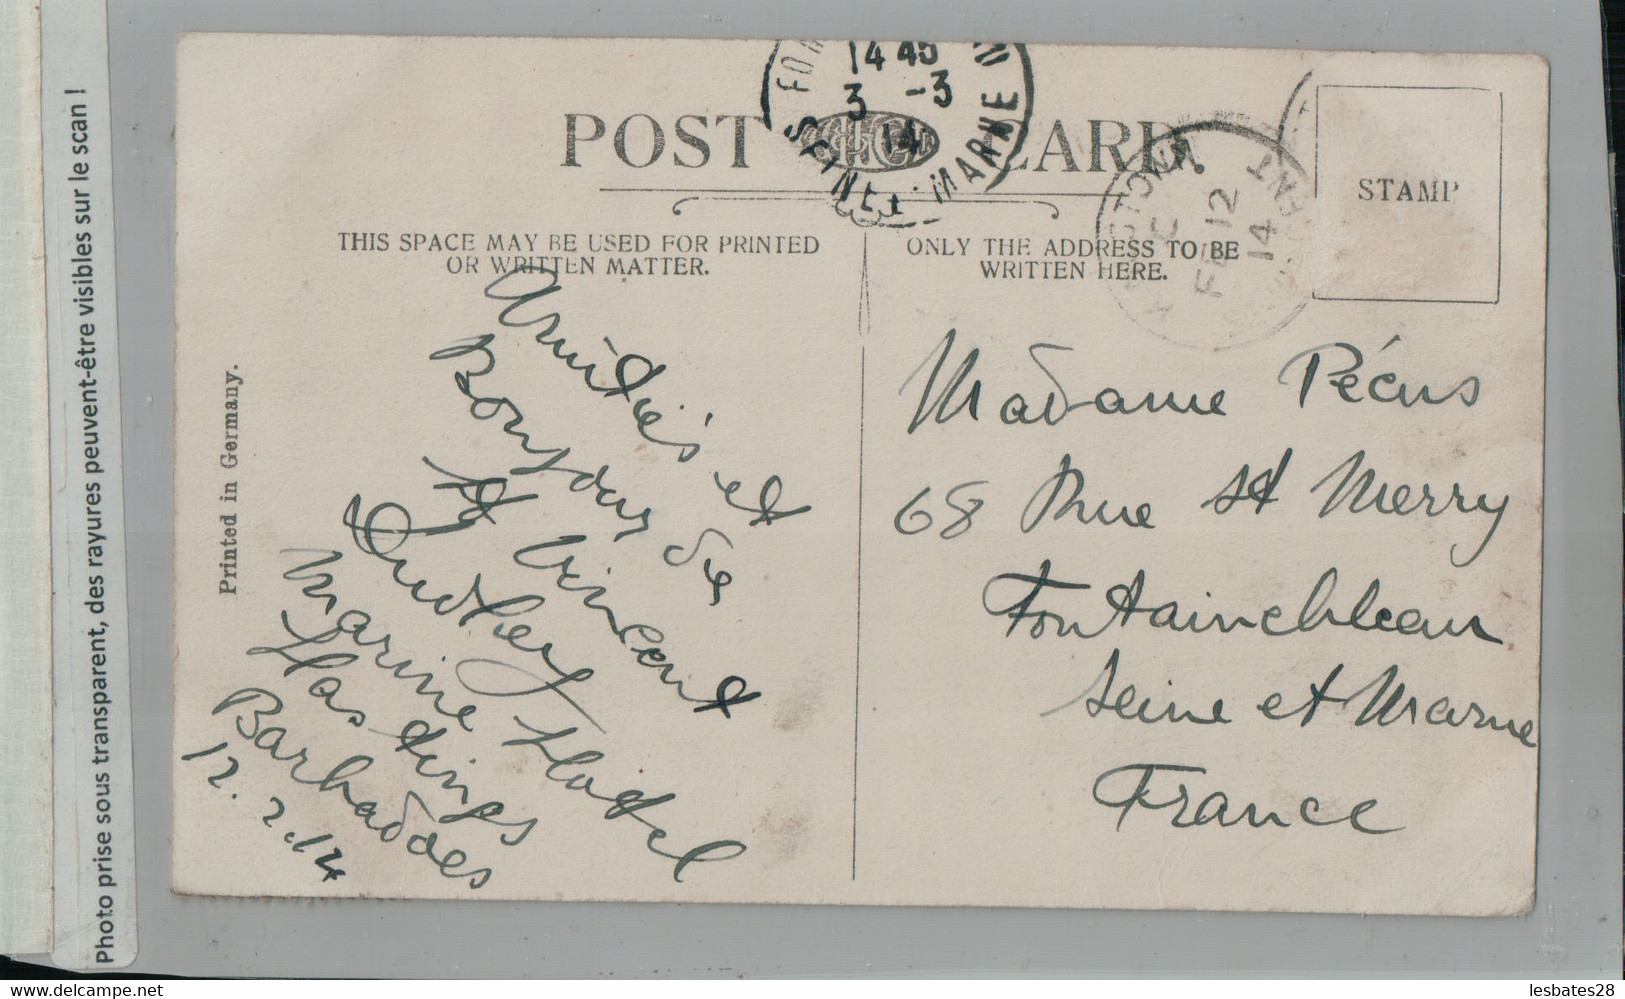 Photo prise sous transparent, des rayures peuvent-être visibles sur le scan !
POST CARD.
14 45
3 -3
14
SEINE MARNE
FE 12
14
STAMP
THIS SPACE MAY BE USED FOR PRINTED
OR WRITTEN MATTER.
ONLY THE ADDRESS TO BE
WRITTEN HERE.
Printed in Germany.
Amitiés et
Bonjour de
St Vincent
Marine Hotel
Hastings
Barbadoes
12.2.14
Madame Pécus
68 Rue St Merry
Fontainebleau
Seine et Marne
France
www.delcampe.net
lesbates28